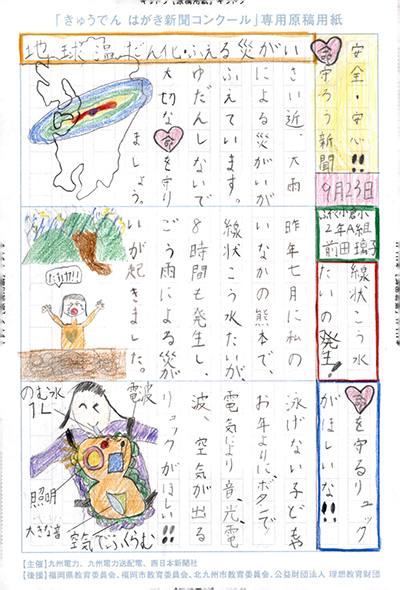 「きゅうでん はがき新聞コンクール」専用原稿用紙
地球温だん化・ふえる災がい
安全・安心!!
命守ろう新聞
9月23日
小
2年A組
前田
さい近、大雨
による災がいが
ふえています。
ゆだんしないで
大切な命を守り
ましょう。
線状こう水
たいの発生!
昨年七月に私の
いなかの熊本で、
線状こう水たいが、
8時間も発生し、
ごう雨による災が
いが起きました。
だれか!!
命を守るリュック
がほしいな!!
泳げない子どもや
お年よりに、ボタンで
電気により音、光、電
波、空気が出る
リュックがほしい!!
のむ水
1L
電波
照明
大きな音
空気でふくらむ
【主催】九州電力、九州電力送配電、西日本新聞社
【後援】福岡県教育委員会、福岡市教育委員会、北九州市教育委員会、公益財団法人 理想教育財団